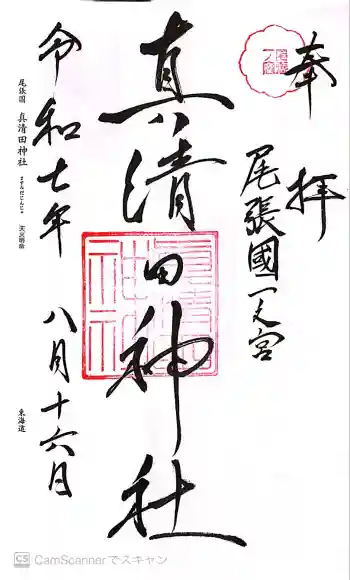 奉拝
尾張國一之宮
真清田神社
令和七年 八月十六日
尾張國 真清田神社 ますみだじんじゃ 天火明命
東海道
CS CamScannerでスキャン